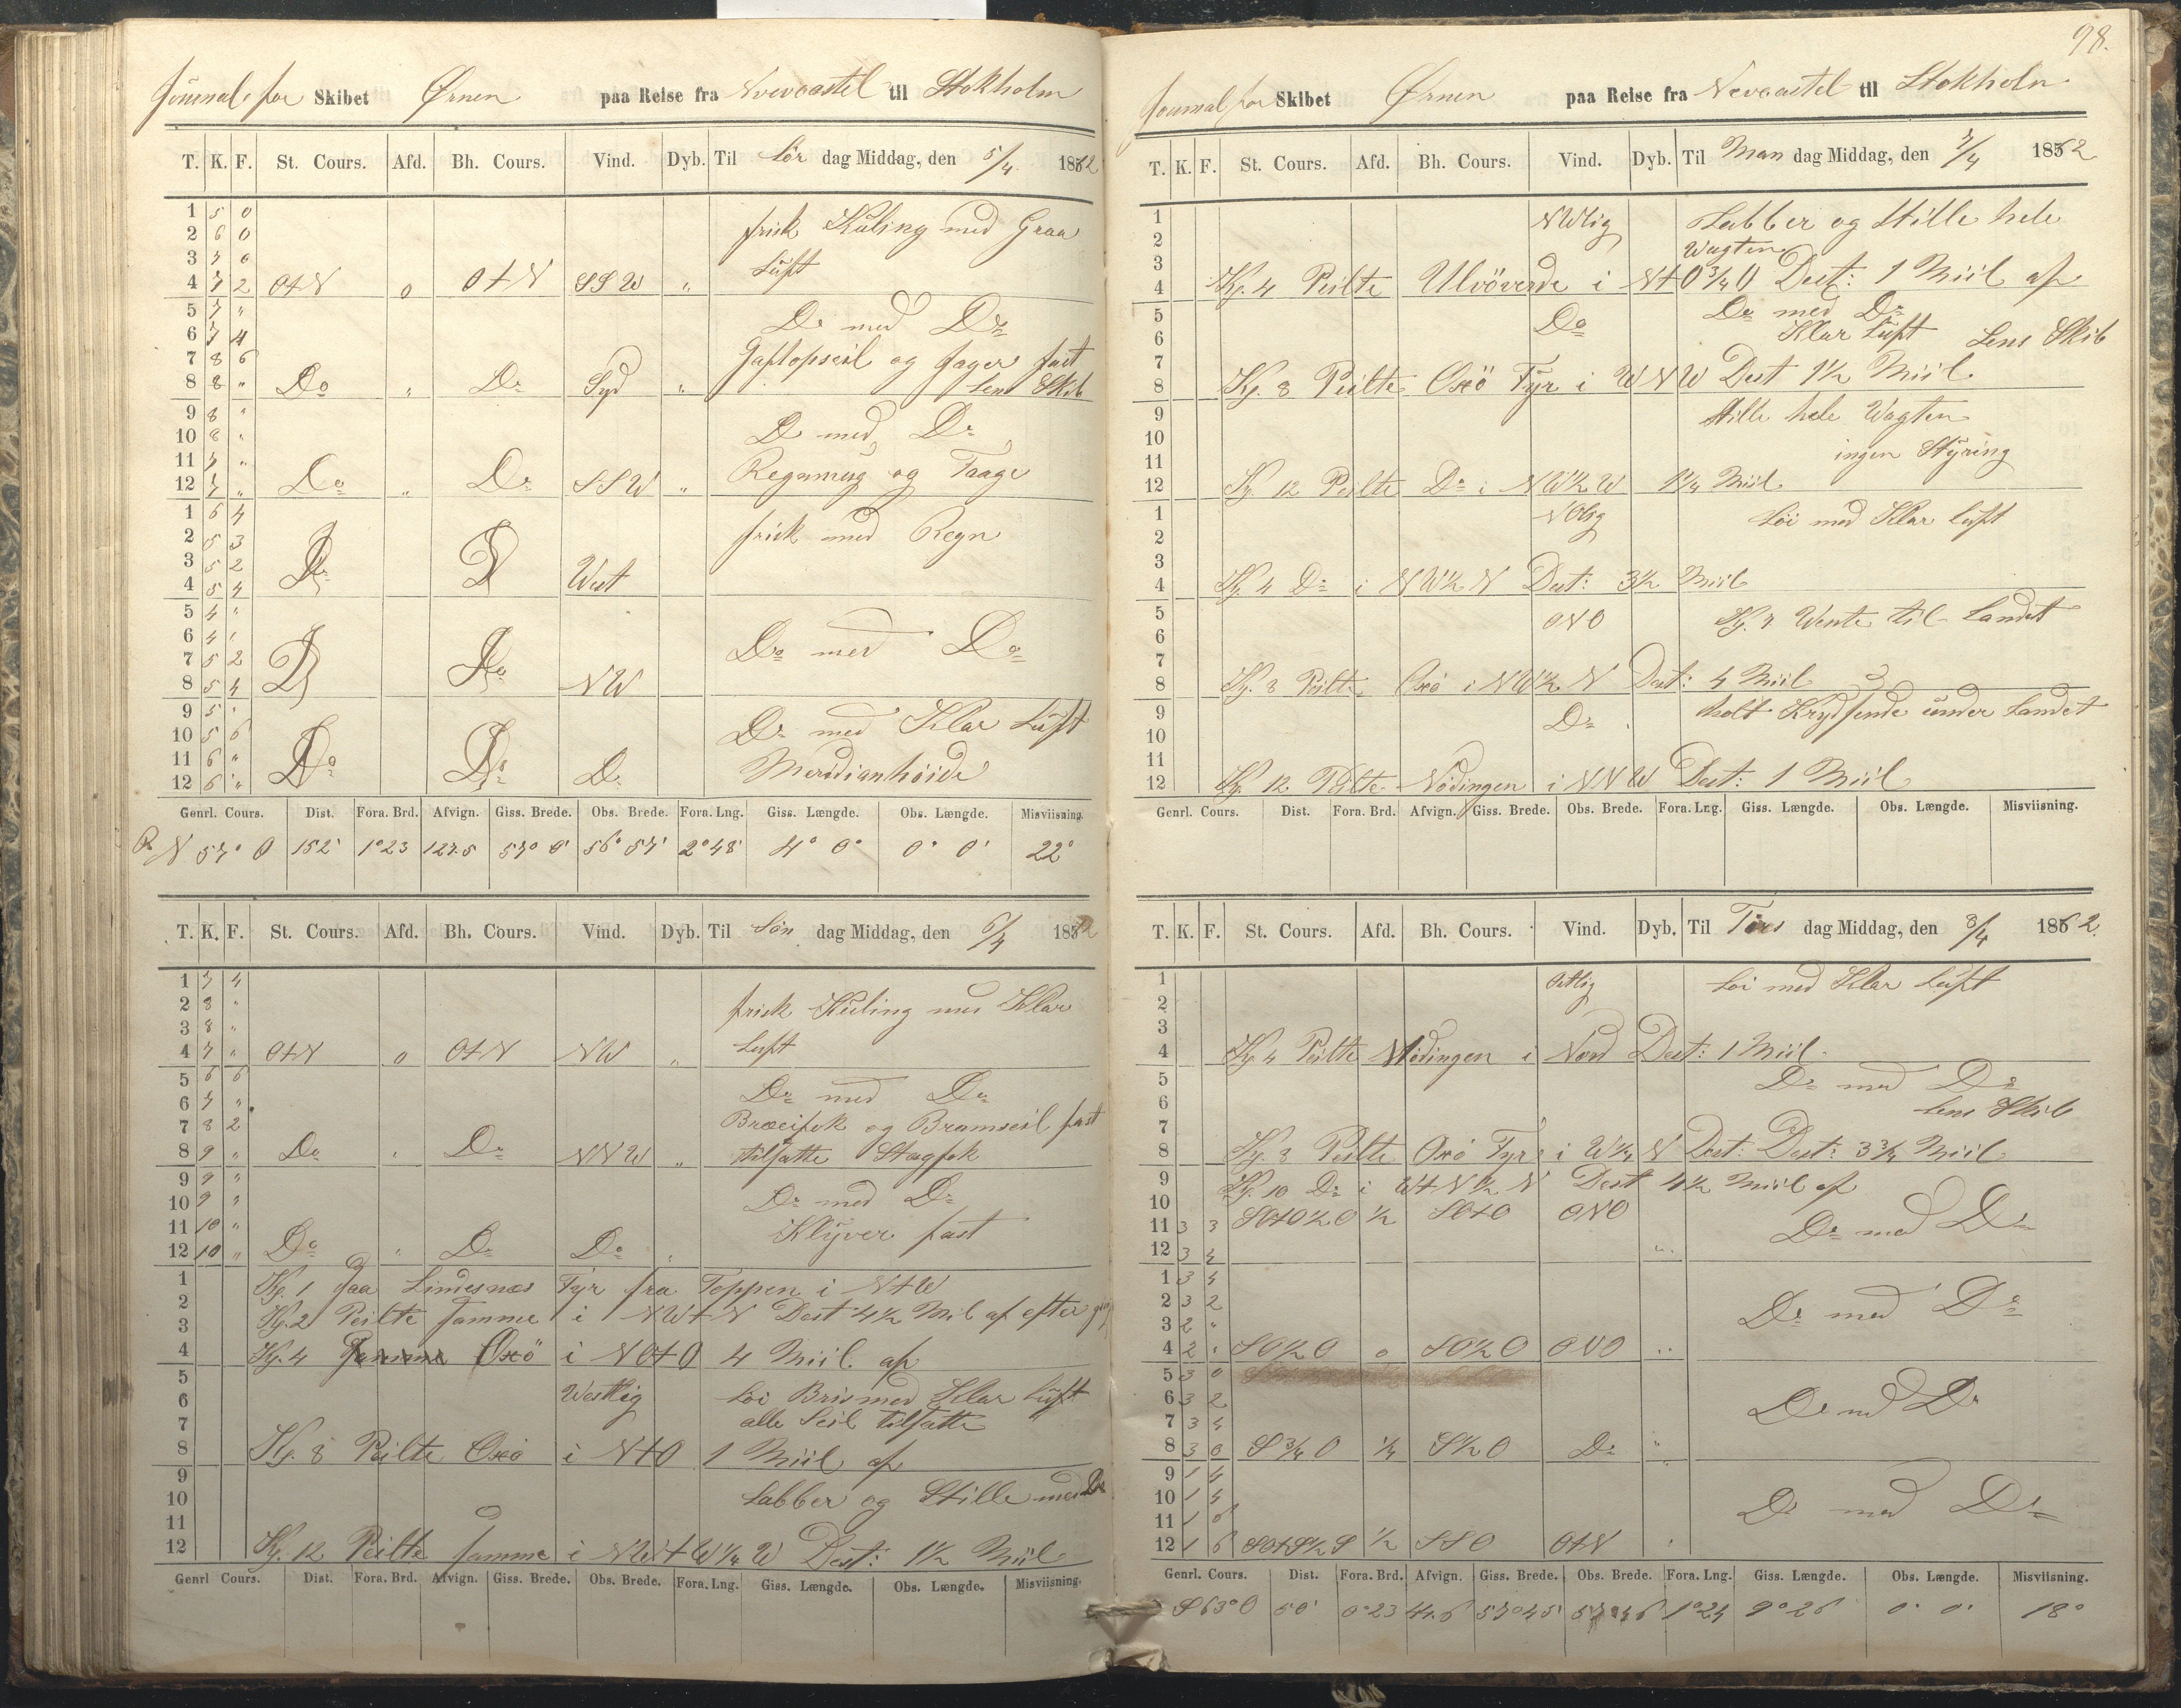 Journal for Skibet Ørnen paa Reise fra Nevcastel til Stokholm
T. K. F. St. Cours. Afd. Bh. Cours. Vind. Dyb. Til Lör dag Middag, den 5/4 1862
1 5 0 frisk Kuling med Graa
2 6 0
3 7 0 Luft
4 7 2 OtN 0 OtN SSW "
5 7 " Do med Do
6 7 4
7 8 6 Gaftopseil og Jager fast
8 8 " Do " Do Syd " Lens Skib
9 8 "
10 8 " Do med Do
11 7 " Regnmug og Taage
12 7 " Do " Do SSW "
1 6 4 frisk med Regn
2 5 3
3 5 2
4 5 4 Do D West
5 4 "
6 4 " Do med Do
7 5 2
8 5 4 D Do NW
9 5 " Do med Klar Luft
10 5 6
11 6 " Meridianhöide
12 6 " Do Do Do
Genrl. Cours. Dist. Fora. Brd. Afvign. Giss. Brede. Obs. Brede. Fora. Lng. Giss. Længde. Obs. Længde. Misviisning.
R N 57° O 152' 1°23 127.5 57° 0' 56° 57' 2°48' 4° 0° 0° 0' 22°
T. K. F. St. Cours. Afd. Bh. Cours. Vind. Dyb. Til Sön dag Middag, den 6/4 1862
1 7 4
2 8 " frisk Kuling med Klar
3 8 "
4 7 " OtN 0 OtN NW " Luft
5 6 6
6 7 " Do med Do
7 8 2 Bræcifok og Bramseil fast
8 9 " Do " Do NNW " tilsatte Stagfok
9 9 "
10 9 " Do med Do
11 10 " Klyver fast
12 10 " Do " Do Do "
1 Kg. 1 saa Lindesnæs Fyr fra Toppen i NtW
2 Kg. 2 Peilte samme i NWtN Dest 4½ Mil af efter
3
4 Kg. 4 samme Oxö i NOtO 4 Miil af
5
6 Westlig Löi Bris med Klar Luft
7 alle Seil tilsatte
8 Kg. 8 Peilte Oxö i NtO 1 Miil af
9
10 Labber og Stille med Do
11
12 Kg. 12 Peilte samme i NWtW¼W Dest: 1½ Miil
Genrl Cours. Dist. Fora. Brd. Afvign. Giss. Brede. Obs. Brede. Fora. Lng. Giss. Længde. Obs. Længde. Misviisning.
98.
Journal for Skibet Ørnen paa Reise fra Nevcastel til Stokholm
T. K. F. St. Cours. Afd. Bh. Cours. Vind. Dyb. Til Man dag Middag, den 7/4 1862
1 NWlig Labber og Stille hele
2 Wagten
3
4 Kg. 4 Peilte Ulvöverde i NtO¾O Dest: 1 Miil af
5 Do med Do
6 Do Klar Luft Lens Skib
7
8 Kg. 8 Peilte Oxö Fyr i WNW Dest 1½ Miil
9 Stille hele Wagten
10
11 ingen Styring
12 Kg. 12 Peilte Do i NW½W 1¼ Miil
1 NOlig Löi med Klar luft
2
3
4 Kg. 4 Do i NW½N Dest: 3½ Miil
5 ONO Kg. 7 Wente til Landet
6
7
8 Kg. 8 Peilte Oxö i NW½N Dest: 4 Miil
9 Do holt Krydsende under Landet
10
11
12 Kg. 12 Peilte Nödingen i NNW Dest: 1 Miil
Genrl. Cours. Dist. Fora. Brd. Afvign. Giss. Brede. Obs. Brede. Fora. Lng. Giss. Længde. Obs. Længde. Misviisning.
T. K. F. St. Cours. Afd. Bh. Cours. Vind. Dyb. Til Tirs dag Middag, den 8/4 1862.
1 Ostlig Löi med Klar Luft
2
3
4 Kg. 4 Peilte Nödingen i Nord Dest: 1 Miil
5 Do med Do
6 Lens Skib
7
8 Kg. 8 Peilte Oxö Fyr i W¼N Dest: Dest: 3¾ Miil
9 Kg. 10 Do i WtN½N Dest 4½ Miil af
10
11 3 3 SOtO½O ½ SOtO ONO Do med Do
12 3 4 "
1 3 4
2 3 2 Do med Do
3 2 "
4 2 " SO½O 0 SO½O ONO "
5 3 0
6 3 2 Do med Do
7 3 4
8 3 0 S¾O ¼ S½O Do "
9 1 4
10 1 4 Do med Do
11 1 6
12 1 6 SOtS½S ½ SSO OtN "
Genrl. Cours. Dist. Fora. Brd. Afvign. Giss. Brede. Obs. Brede. Fora. Lng. Giss. Længde. Obs. Længde. Misviisning.
S 63° O 50' 0°23 44.6 57°45' 57°46 1°24 9°26 0° 0' 18°